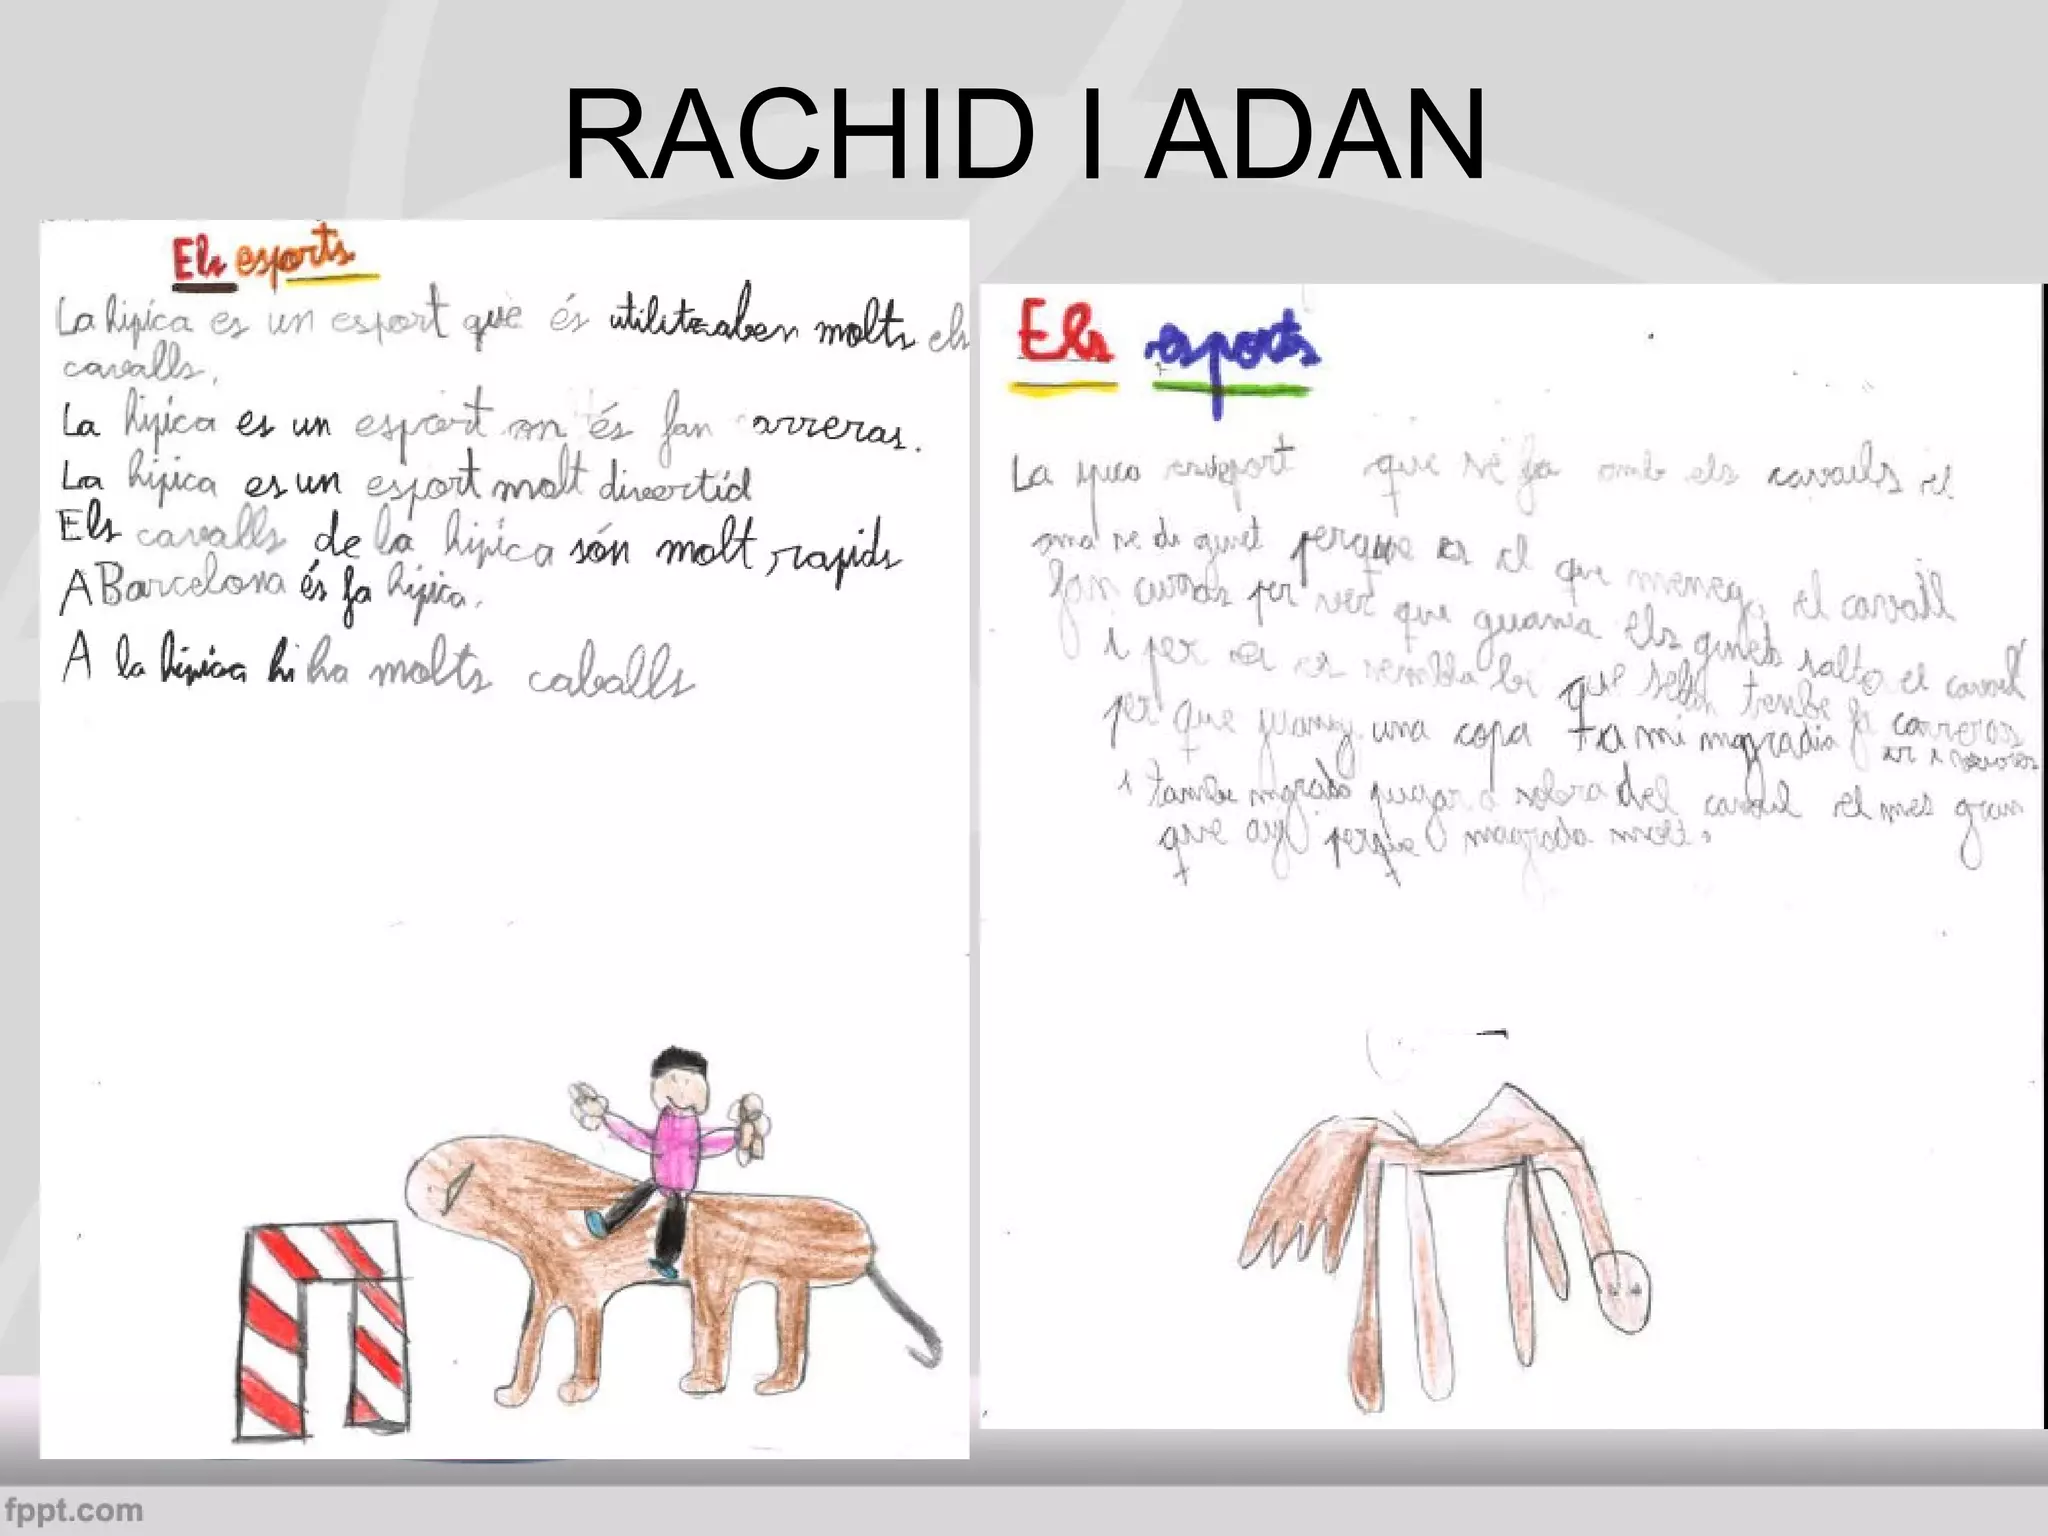 RACHID I ADAN
Els esports
La hípica es un esport que és utilitzaben molts els
cavalls.
La hípica es un esport on és fan arreras.
La hípica es un esport molt divertid
Els cavalls de la hípica són molt rapids
A Barcelona és fa hípica.
A la hípica hi ha molts caballs
Els esports
La que se fa amb els cavalls el
perque es el que meneja el cavall
fan curses per vert que guania els ginets salta el cavall
i per a es sembla be que
per que guany una copa Ta mi magradia fa carreras
i tambe magrada jugar a sobra del cavall el mes gran
que ay perque magrada molt.
fppt.com